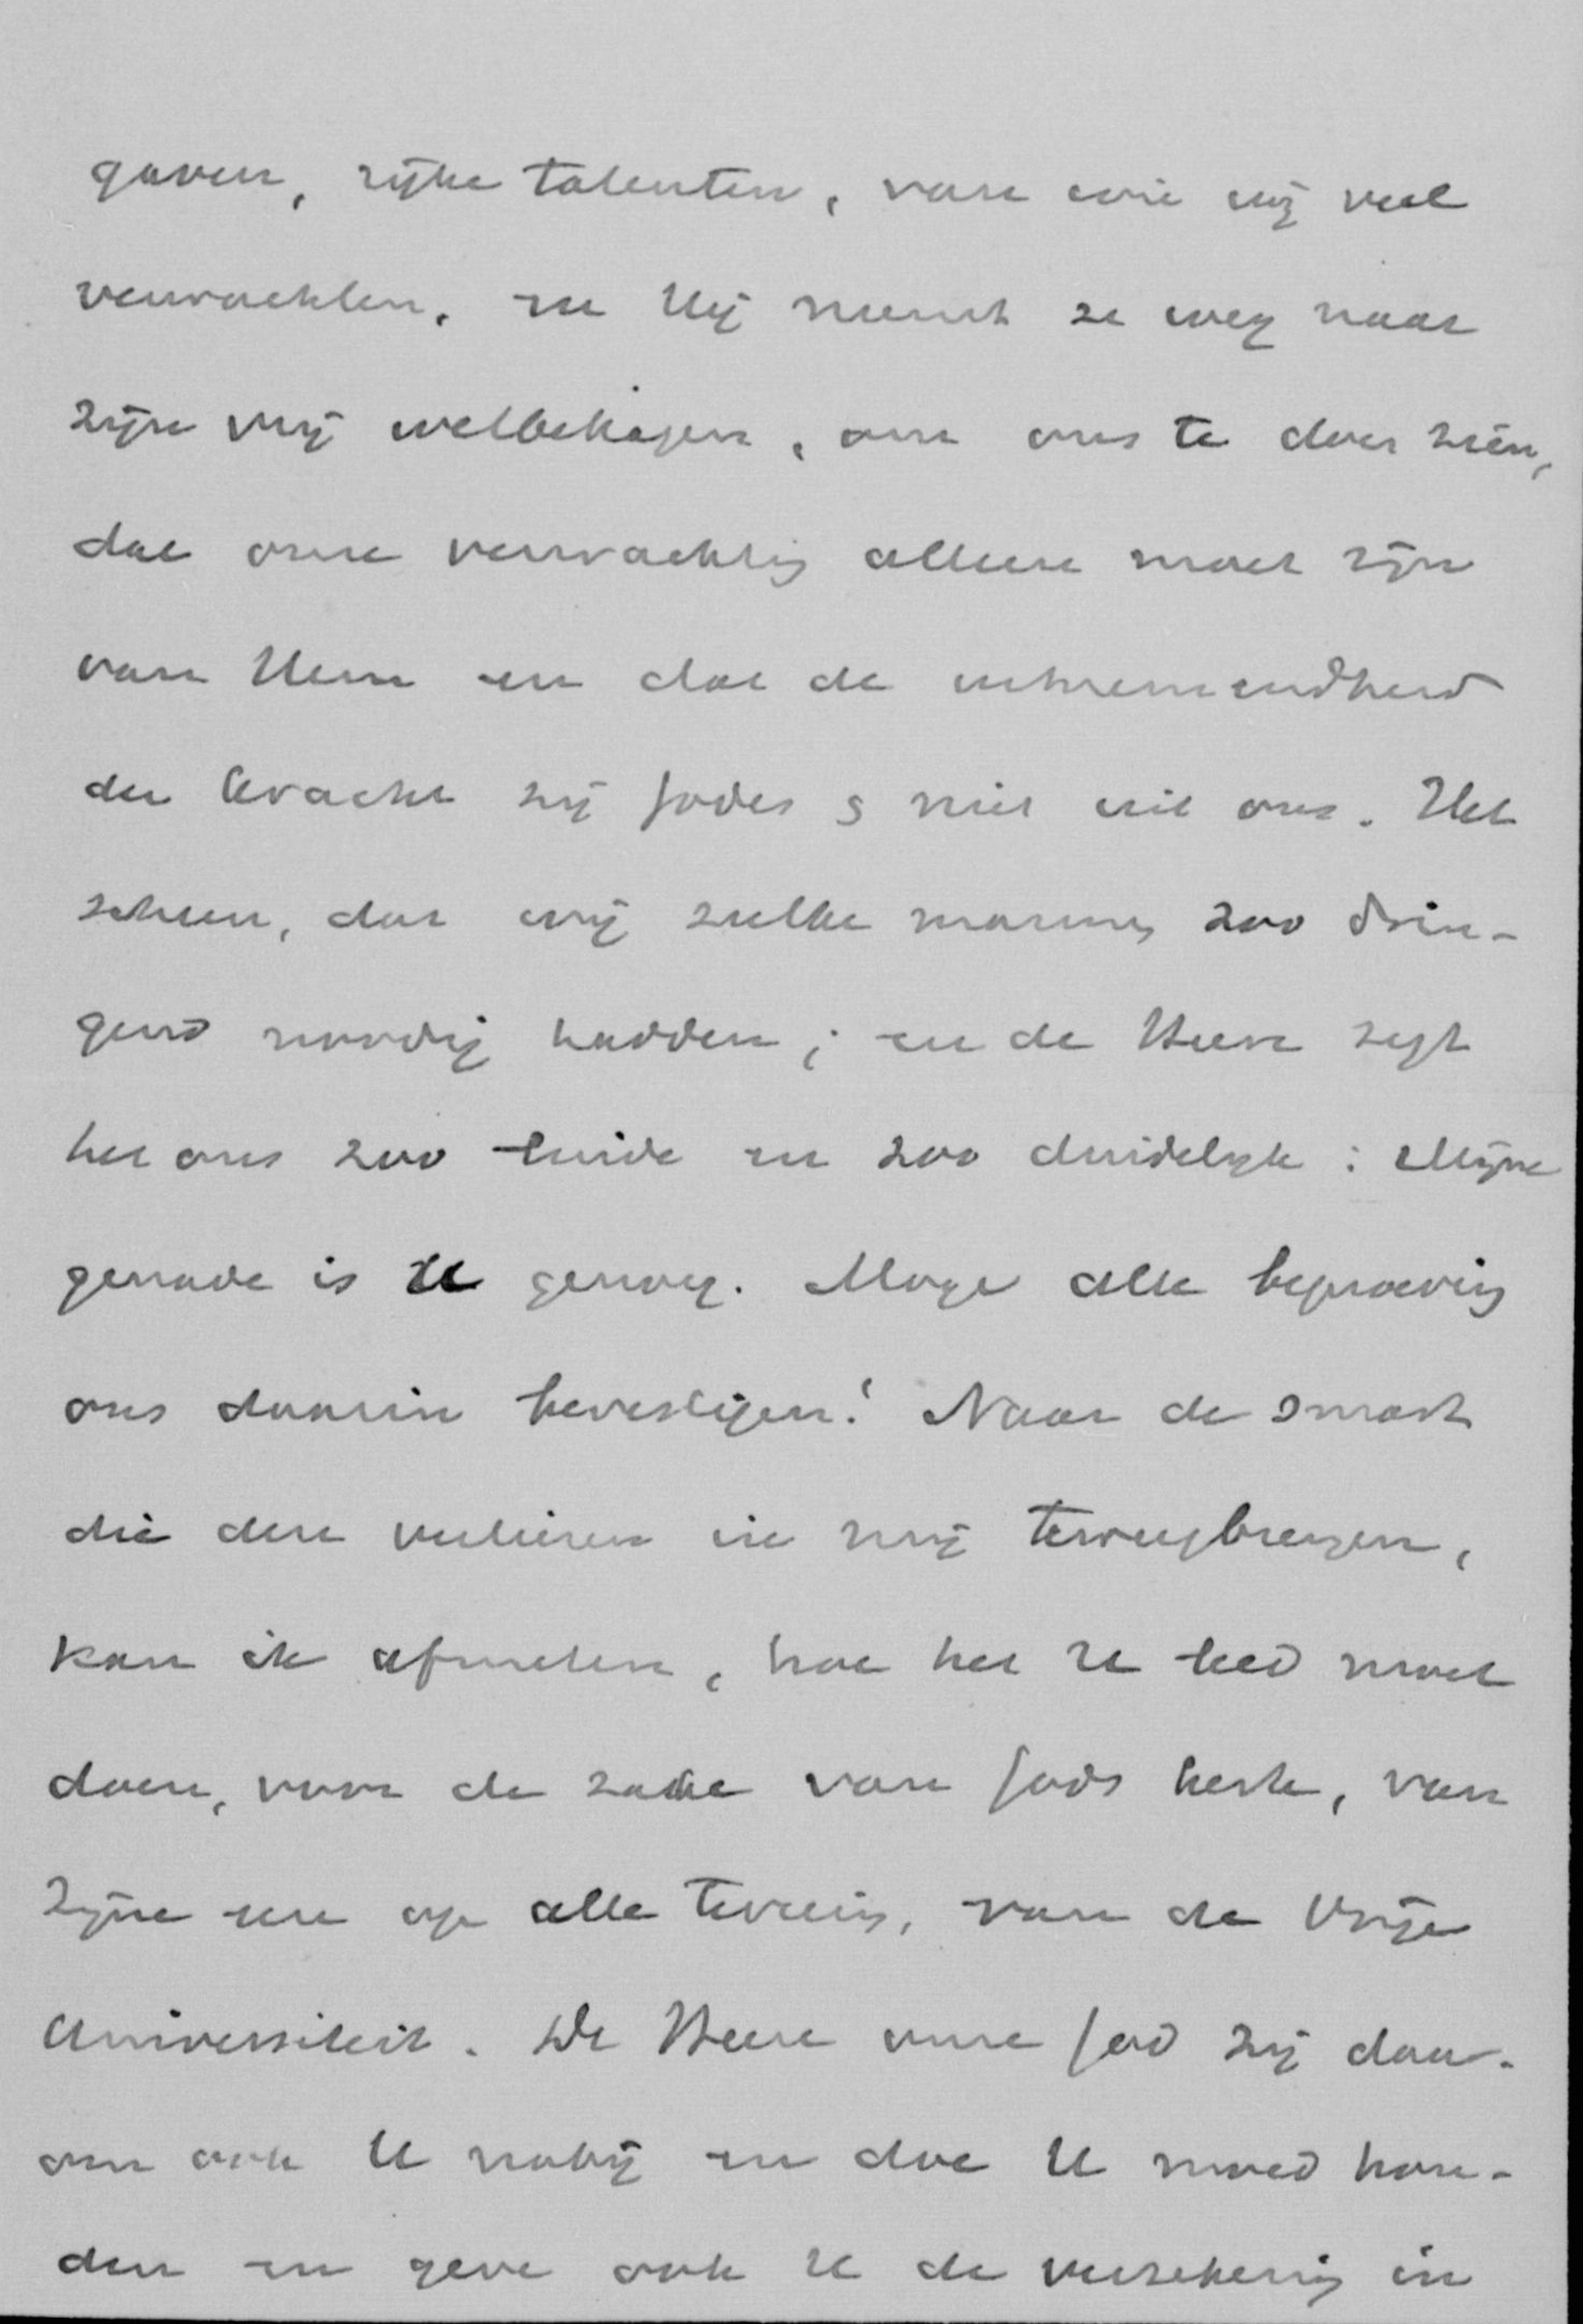 gaven, rijke talenten, van wie wij veel
verwachten, en Hij neemt ze weg naar
zijn vrij welbehagen, om ons te doen zien,
dat onze verwachting alleen moet zijn
van Hem en dat de uitnemendheid
der kracht zij Godes & niet uit ons. Het
scheen, dat wij zulke mannen zoo drin-
gend noodig hadden; en de Heere zegt
het ons zoo luide en zoo duidelijk: Mijne
genade is U genoeg. Moge elke beproeving
ons daarin bevestigen! Naar de smart
die deze verliezen in mij teweegbrengen,
kan ik afmeten, hoe het U leed moet
doen, voor de zake van Gods kerk, van
Zijne eer op alle terrein, van de Vrije
Universiteit. De Heere onze God zij daar-
om ook U nabij en doe U moed hou-
den en geve ook U de verzekering in